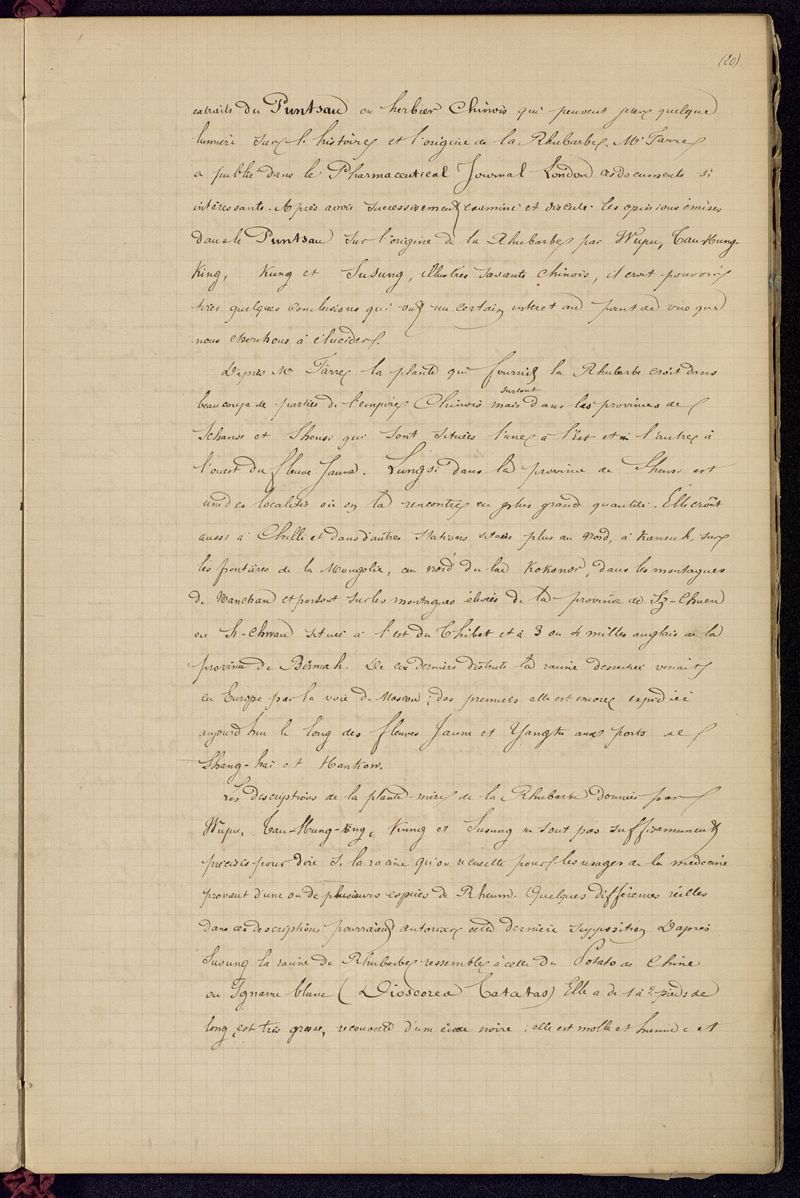 (20)
extraits du Puntsau ou herbier Chinois qui peuvent jeter quelque
lumiere sur l'histoire et l'origine de la Rhubarbe. Mr Farre
a publié dans le Pharmaceutical Journal London ces documents si
intéressants. Après avoir successivement examiné et discuté les opinions émises
dans le Puntsau sur l'origine de la Rhubarbe par Wupu, Tau-Hung-
King, Kung et Susung, illustres savants chinois, il croit pouvoir
tirer quelques conclusions qui ont un certain interet au point de vue que
nous cherchons à élucider.
D'après Mr Farre la plante qui fournit la Rhubarbe croit dans
beaucoup de parties de l'empire Chinois mais surtout dans les provinces de
Schansi et Shensi qui sont situées l'une à l'Est et l'autre à
l'ouest du fleuve Jaune. Lungsi dans la province de Shensi est
une des localités où on la rencontre en plus grande quantité. Elle croît
aussi à Chilli et dans d'autres stations situées plus au Nord, à Kansuh, sur
les frontières de la Mongolie, au nord du lac Kokonor, dans les montagnes
de Nanchan et partout sur les montagnes élevées de la province de Sz-Chuen
ou Si-Chwan située à l'est du Thibet et à 3 ou 4 milles anglais de la
province de Birmah. De ces derniers districts la racine dessechée venait
en Europe par la voie de Moscou; des premiers elle est encore expediée
aujourd'hui le long des fleuves Jaune et Yangtu aux ports de
Shang-haï et Hankow.
Les descriptions de la plante mère de la Rhubarbe donnée par
Wupu, Tau-Hung-King, Kung et Susung ne sont pas suffisamment
précises pour dire si la racine qu'on recueille pour les usages de la medecine
provient d'une ou de plusieurs espèces de Rheum. Quelques différences réelles
dans ces descriptions pourraient autoriser cette dernière supposition. D'après
Susung la racine de Rhubarbe ressemble à celle du Potato de Chine
ou Igname blanc (Dioscorea Batatas) Elle a de 1 à 2 pieds de
long, est très grosse, recouverte d'une écorce noire; elle est molle et humide et